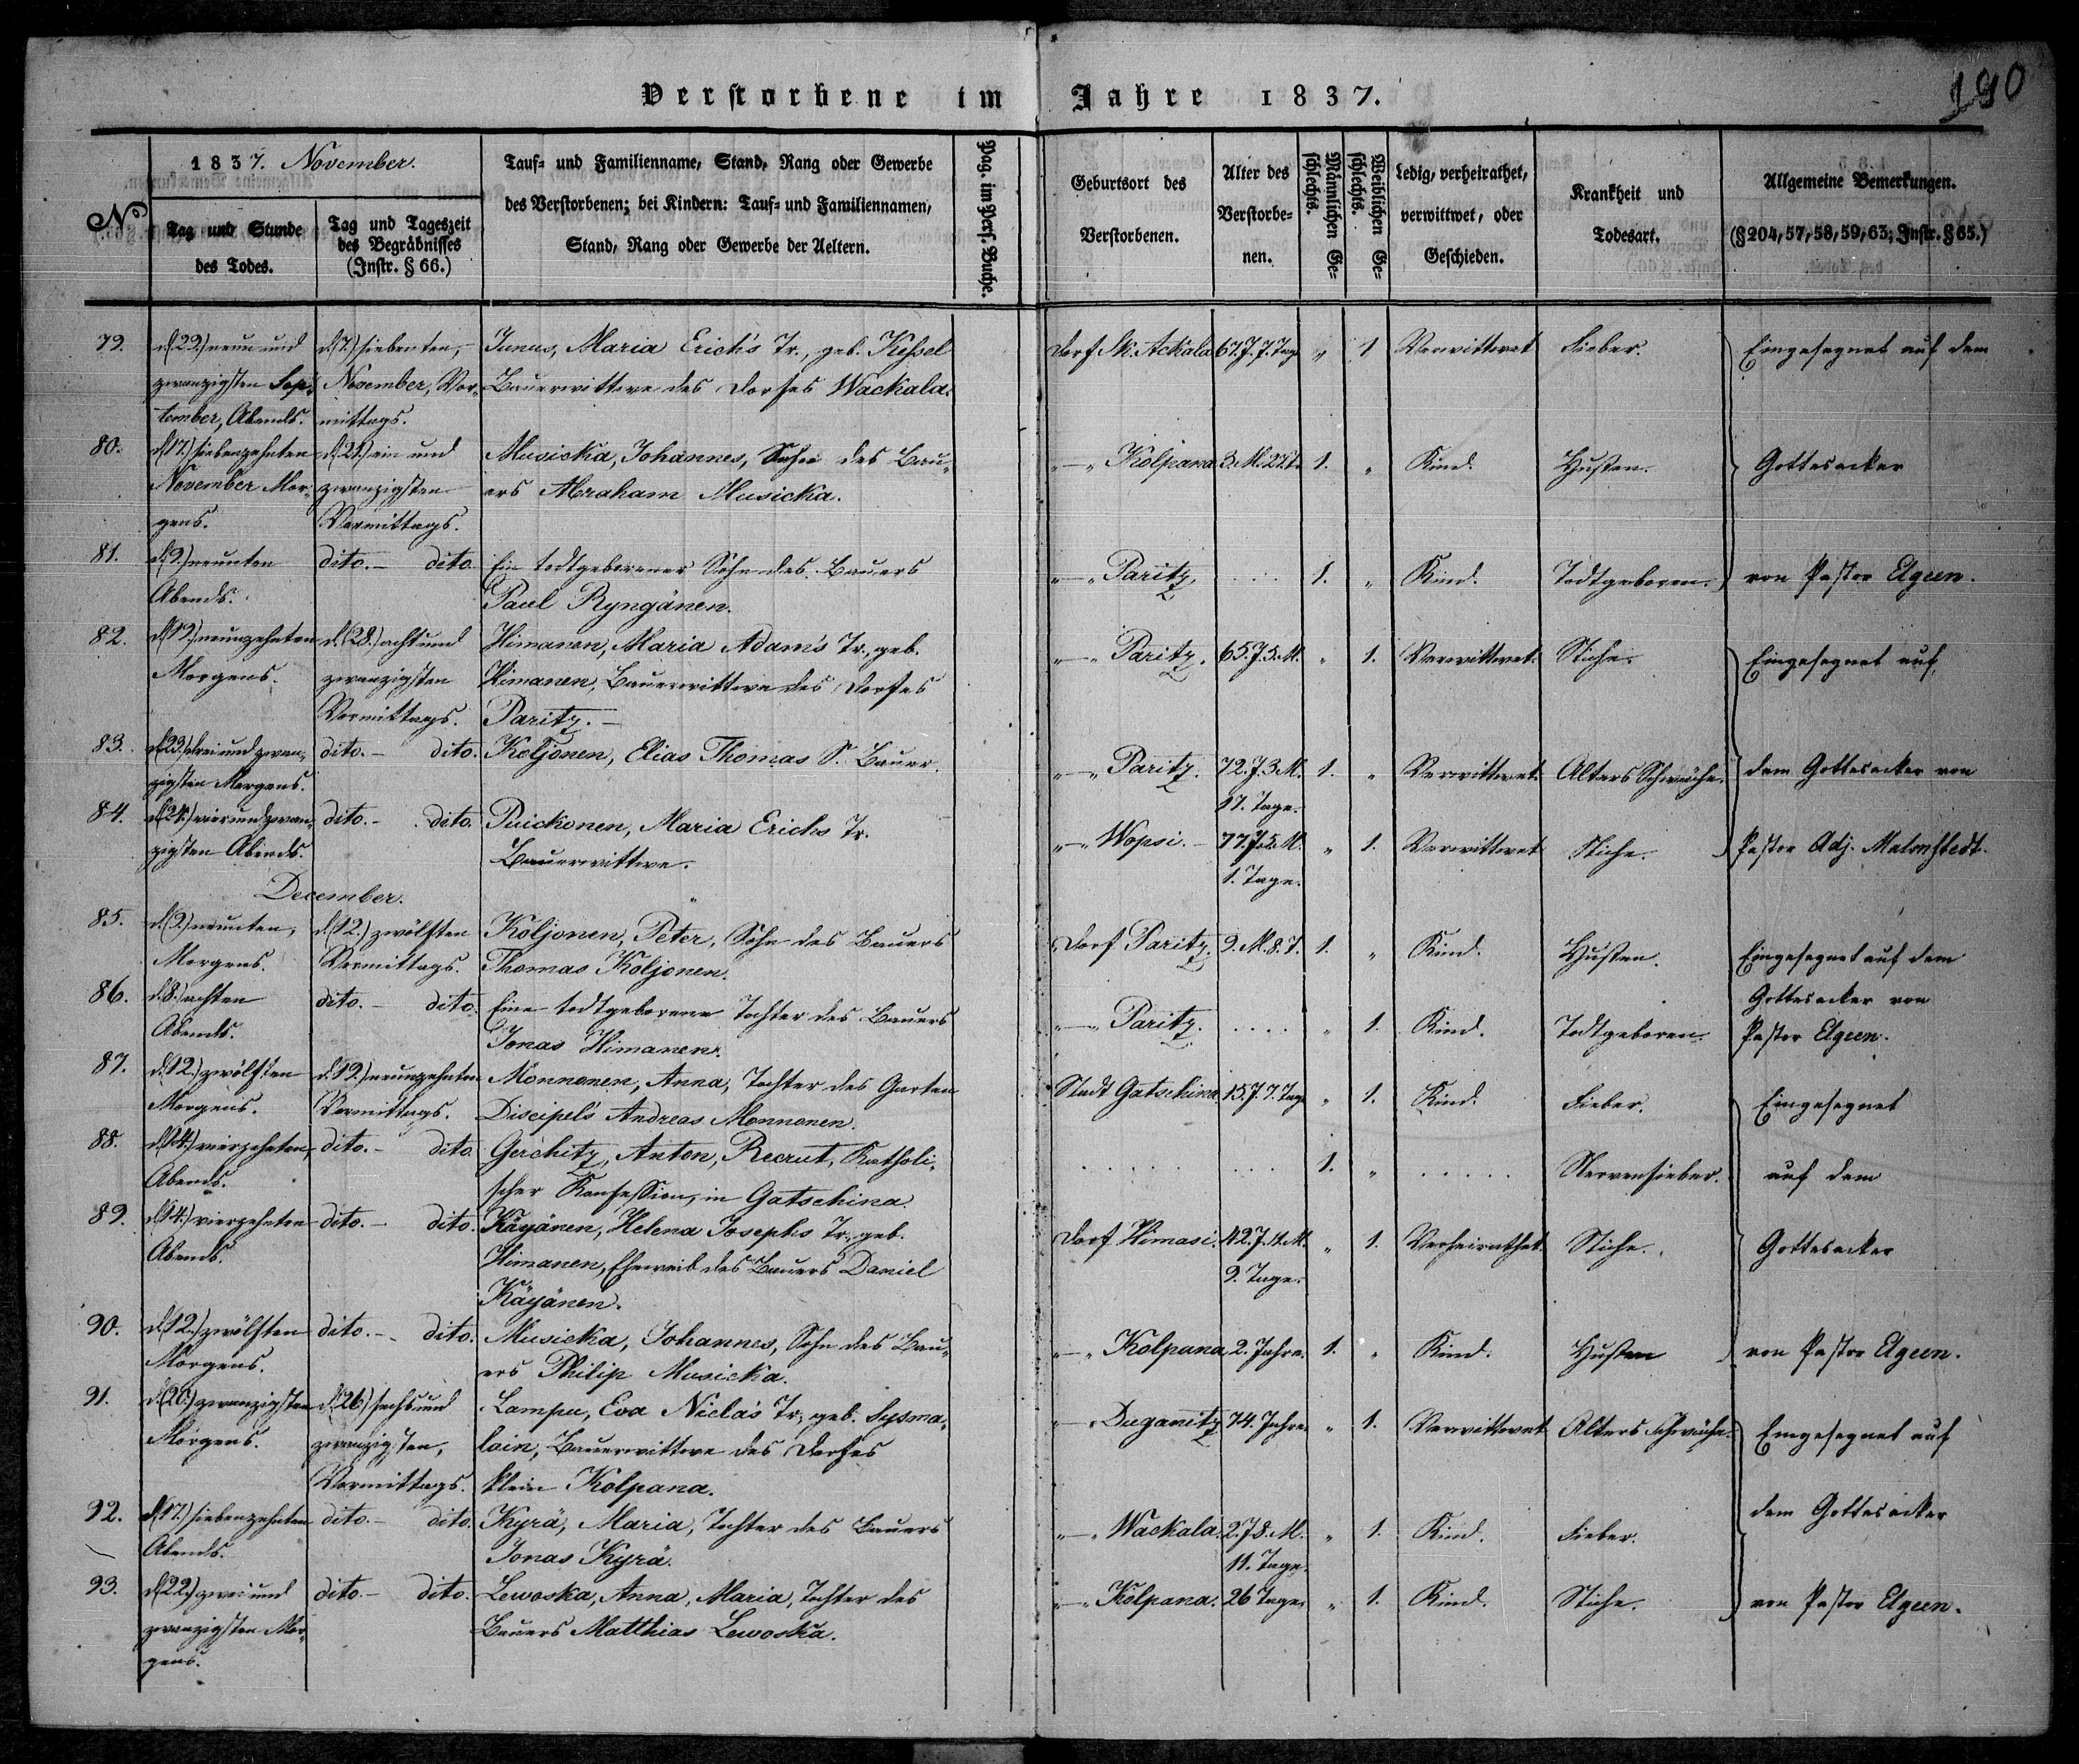 Verstorbene im Jahre 1837.
190
No
1837. November.
Tag und Stunde des Todes.
Tag und Tageszeit des Begräbnisses (Instr. § 66.)
Tauf- und Familienname, Stand, Rang oder Gewerbe des Verstorbenen; bei Kindern: Tauf- und Familiennamen, Stand, Rang oder Gewerbe der Aeltern.
Pag. im Pers. Buche.
Geburtsort des Verstorbenen.
Alter des Verstorbenen.
Männlichen Geschlechts.
Weiblichen Geschlechts.
Ledig, verheirathet, verwittwet, oder Geschieden.
Krankheit und Todesart.
Allgemeine Bemerkungen. (§ 204, 57, 58, 59, 63; Instr. § 65.)
79. d. (29.) neun und d. (7.) siebenten, Junus, Maria Erich's Tr., geb. Kessel Dorf Sk. Ackala 67. J. 7. Tag " 1 Verwittwet Fieber. Eingesegnet auf dem
zwanzigsten Sep- November, Vor- Bauerwittwe des Dorfes Wackala.
tember, Abends. mittags.
80. d. (17.) siebenzehnten d. (21.) ein und Musicka, Johannes, Sohn des Bau- "—" Kolpana 3. M. 27. t. 1. " Kind. Husten. Gottesacker
November Mor- zwanzigsten ers Abraham Musicka.
gens. Vormittags.
81. d. (9.) neunten dito. — dito. Ein todtgeborener Sohn des Bauers "—" Paritz. .... 1. " Kind. Todtgeboren. von Pastor Elgeen.
Abends. Paul Ryngänen.
82. d. (19.) neunzehnten d. (28.) acht und Himanen, Maria Adam's Tr., geb. "—" Paritz. 65. J. 5. M. " 1. Verwittwet. Stiche. Eingesegnet auf
Morgens. zwanzigsten Himanen, Bauerwittwe des Dorfes
Vormittags. Paritz. —
83. d. (23.) drei und zwan- dito. — dito. Koljonen, Elias Thomas S. Bauer. "—" Paritz. 72. J. 3 M. 1. " Verwittwet. Alters Schwäche. dem Gottesacker von
zigsten Morgens. 17. Tage.
84. d. (24.) vier und zwan- dito. — dito. Puickonen, Maria Erichs Tr. "—" Wopsi. 77. J. 5. M. " 1. Verwittwet Stiche. Pastor Adj. Malmstedt.
zigsten Abends. Bauerwittwe. 1. Tage.
December.
85. d. (9.) neunten, d. (12.) zwölften Koljonen, Peter, Sohn des Bauers Dorf Paritz. 9. M. 8. T. 1. " Kind. Husten. Eingesegnet auf dem
Morgens. Vormittags. Thomas Koljonen.
86. d. (8.) achten dito. — dito. Eine todtgeborene Tochter des Bauers "—" Paritz. .... " 1. Kind. Todtgeboren. Gottesacker von
Abends. Jonas Himanen. Pastor Elgeen.
87. d. (12.) zwölften d. (19.) neunzehnten Monnonen, Anna, Tochter des Garten Stadt Gatschina 15. J. 7. Tag " 1. Kind. Fieber. Eingesegnet
Morgens. Vormittags. Discipels Andreas Monnonen.
88. d. (14.) vierzehnten, dito. — dito. Gerchitz, Anton, Recrut, Katholi- ..... .... 1. " ..... Nervenfieber. auf dem
Abends. scher Konfession, in Gatschina.
89. d. (14.) vierzehnten dito. — dito. Käyänen, Helena Josephs Tr., geb. Dorf Himasi. 42. J. 11. M. " 1. Verheirathet. Stiche. Gottesacker
Abends. Himanen, Eheweib des Bauers Daniel 9. Tage.
Käyänen.
90. d. (12.) zwölften dito. — dito. Musicka, Johannes, Sohn des Bau- "—" Kolpana 2. Jahre. 1. " Kind. Husten von Pastor Elgeen.
Morgens. ers Philip Musicka.
91. d. (20.) zwanzigsten d. (26.) sechs und Lampu, Eva Niclas Tr., geb. Sysma- "—" Duganitz 74. Jahre. " 1. Verwittwet Alters Schwäche. Eingesegnet auf
Morgens. zwanzigsten, lain, Bauerwittwe des Dorfes
Vormittags. klein Kolpana.
92. d. (17.) siebenzehnten dito. — dito. Kyrä, Maria, Tochter des Bauers "—" Wackala. 2. J. 8. M. " 1. Kind. Fieber. dem Gottesacker
Abends. Jonas Kyrä. 11. Tage.
93. d. (22.) zwei und dito. — dito. Lewoska, Anna, Maria, Tochter des "—" Kolpana. 26 Tage. " 1. Kind. Stiche. von Pastor Elgeen.
zwanzigsten Mor- Bauers Matthias Lewoska.
gens.